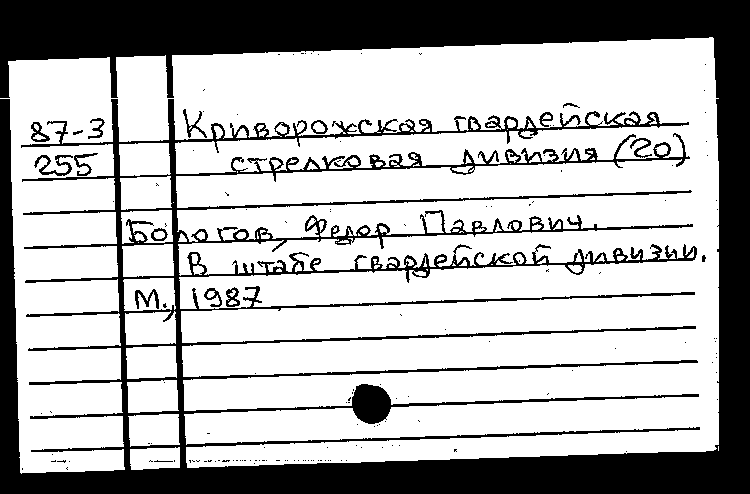 87-3 Криворожская гвардейская
255 стрелковая дивизия (20)
Бологов, Федор Павлович.
В штабе гвардейской дивизии.
М., 1987